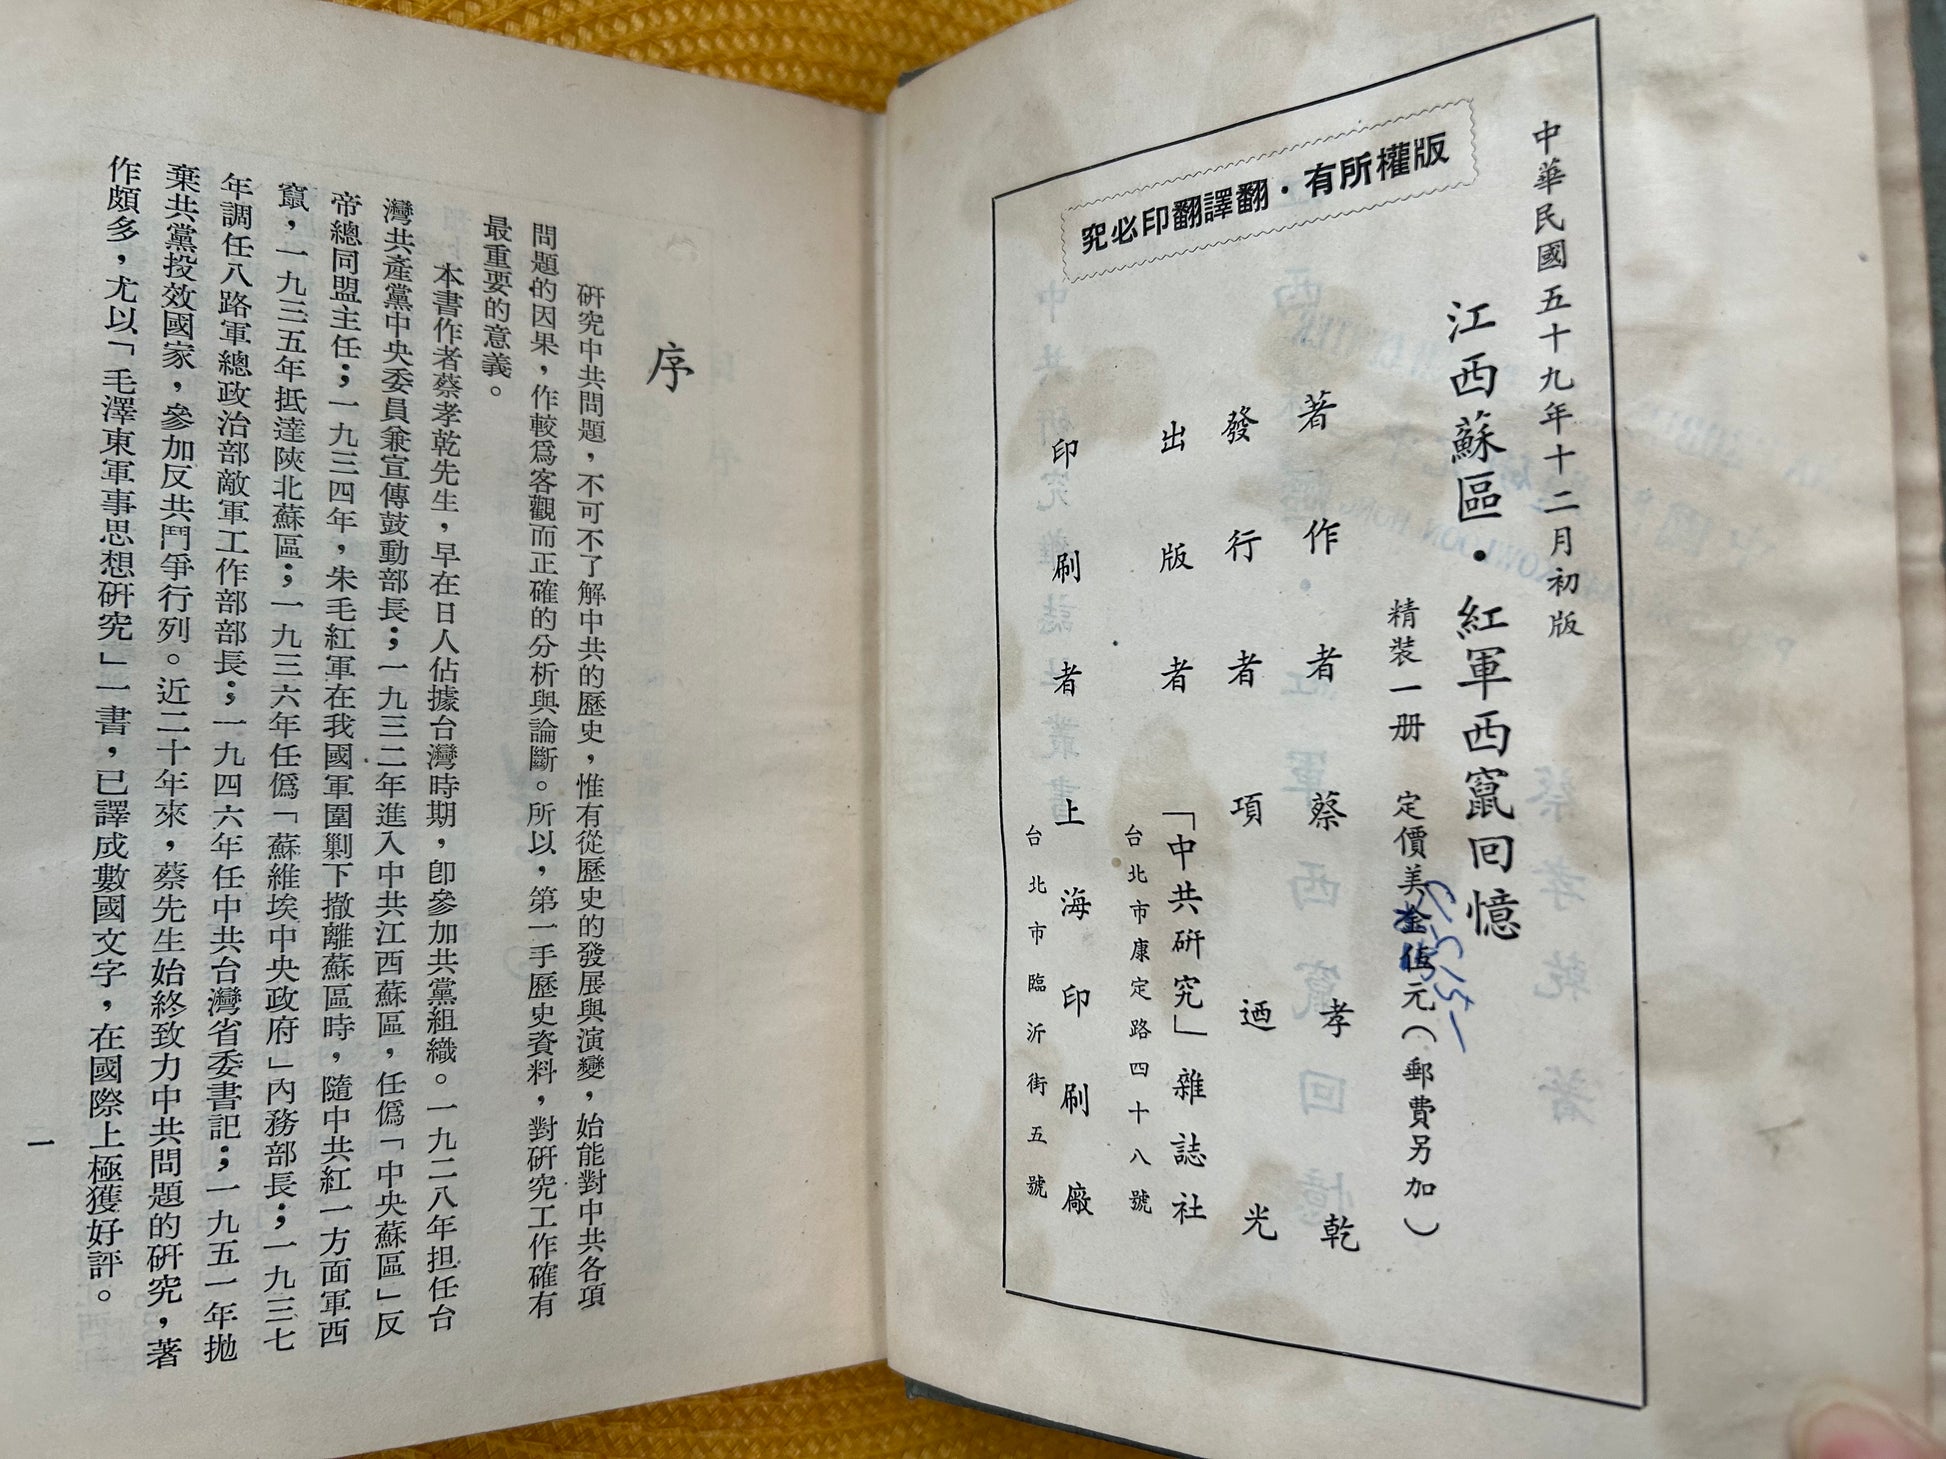 中華民國五十九年十二月初版
江西蘇區・紅軍西竄回憶
精裝一册 定價美金伍元(郵費另加)
著作者 蔡孝乾
發行者 項迺光
出版者 「中共硏究」雜誌社
台北市康定路四十八號
印刷者 上海印刷廠
台北市臨沂街五號
版權所有・翻譯翻印必究
序
硏究中共問題,不可不了解中共的歷史,惟有從歷史的發展與演變,始能對中共各項
問題的因果,作較爲客觀而正確的分析與論斷。所以,第一手歷史資料,對硏究工作確有
最重要的意義。
本書作者蔡孝乾先生,早在日人佔據台灣時期,卽參加共黨組織。一九二八年担任台
灣共產黨中央委員兼宣傳鼓動部長;一九三二年進入中共江西蘇區,任僞「中央蘇區」反
帝總同盟主任;一九三四年,朱毛紅軍在我國軍圍剿下撤離蘇區時,隨中共紅一方面軍西
竄,一九三五年抵達陝北蘇區;一九三六年任僞「蘇維埃中央政府」內務部長;一九三七
年調任八路軍總政治部敵軍工作部部長;一九四六年任中共台灣省委書記;一九五一年拋
棄共黨投效國家,參加反共鬥爭行列。近二十年來,蔡先生始終致力中共問題的硏究,著
作頗多,尤以「毛澤東軍事思想硏究」一書,已譯成數國文字,在國際上極獲好評。
一